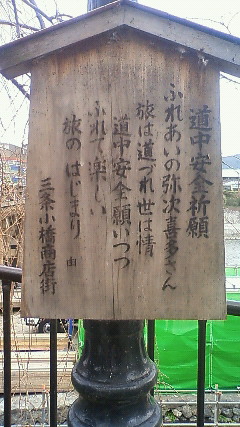 道中安全祈願
ふれあいの弥次喜多さん
旅は道づれ世は情
道中安全願いつつ
ふれて楽しい
旅のはじまり 由
三条小橋商店街